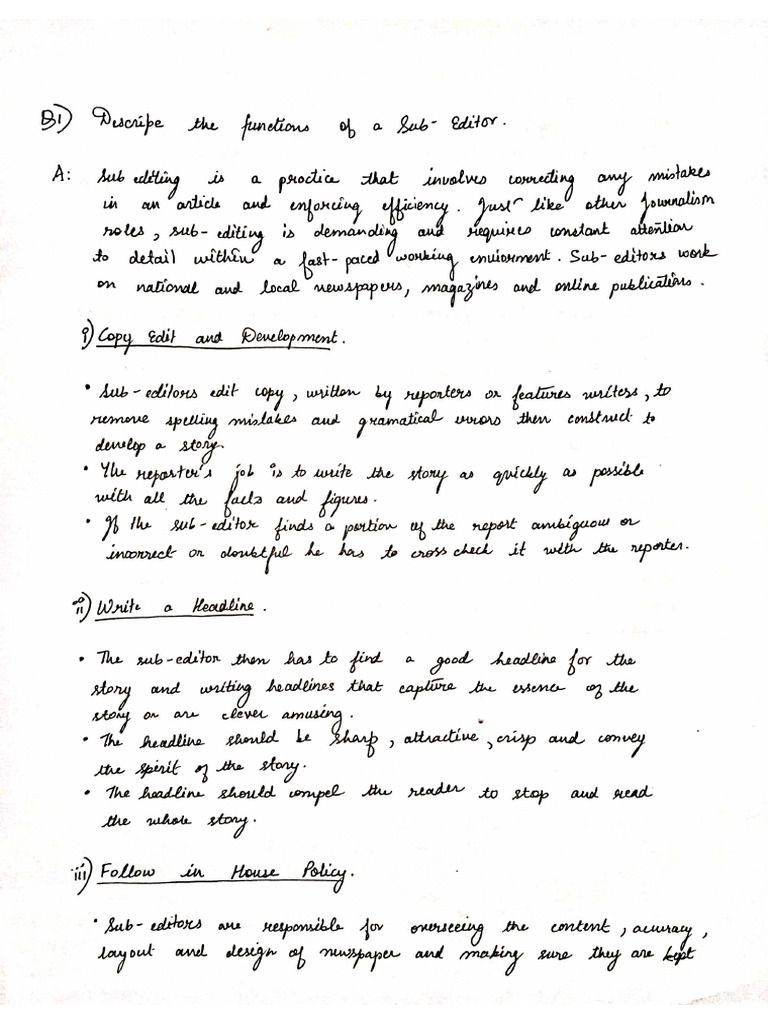 B1) Descripe the functions of a Sub-Editor.
A: Sub editing is a practice that involves correcting any mistakes
in an article and enforcing efficiency. Just like other Journalism
roles, sub-editing is demanding and requires constant attention
to detail within a fast-paced working enviorment. Sub-editors work
on national and local newspapers, magazines and online publications.
i) Copy Edit and Development.
• Sub-editors edit copy, written by reporters or features writers, to
remove spelling mistakes and gramatical errors then construct to
develop a story.
• The reporter's job is to write the story as quickly as possible
with all the facts and figures.
• If the sub-editor finds a portion of the report ambiguous or
incorrect or doubtful he has to cross check it with the reporter.
ii) Write a Headline.
• The sub-editor then has to find a good headline for the
story and writing headlines that capture the essence of the
story or are clever amusing.
• The headline should be sharp, attractive, crisp and convey
the spirit of the story.
• The headline should compel the reader to stop and read
the whole story.
iii) Follow in House Policy.
• Sub-editors are responsible for overseeing the content, accuracy,
layout and design of newspaper and making sure they are kept